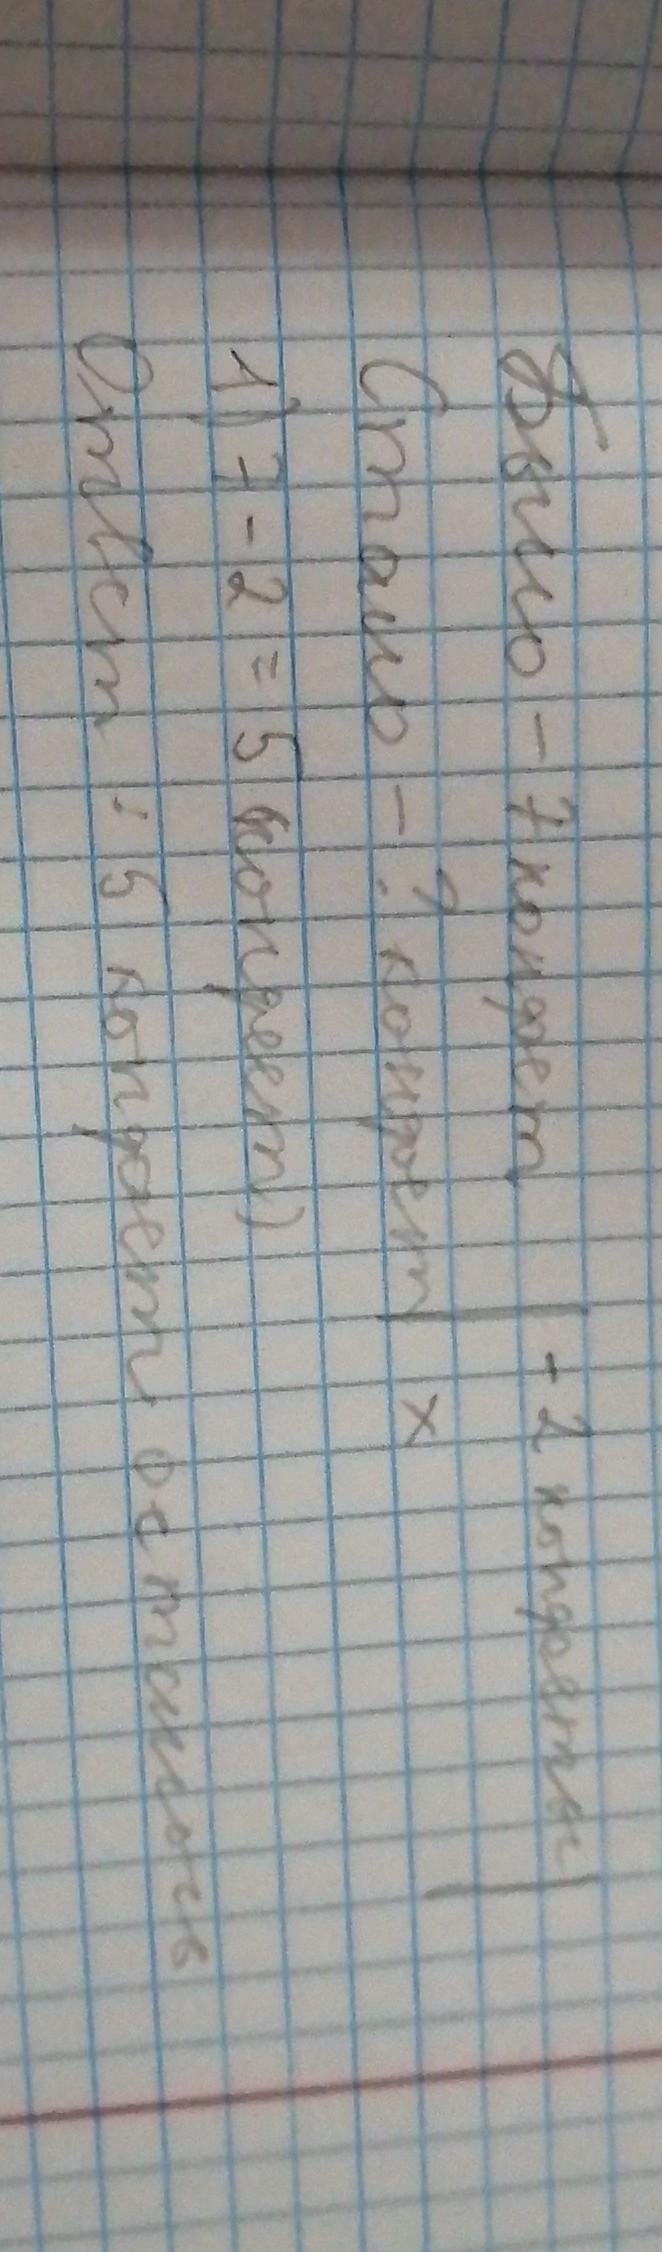 Было - 7 конфет | - 2 конфеты |
Стало - ? конфет | х
1) 7 - 2 = 5 конфет)
Ответ : 5 конфет осталось